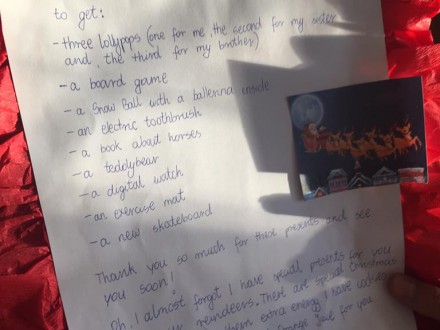 to get:
- three lollypops (one for me, the second for my sister
and, the third for my brother)
- a board game
- a Snow Ball with a ballerina inside
- an electric toothbrush
- a book about horses
- a teddybear
- a digital watch
- an exercise mat
- a new skateboard
Thank you so much for these presents and see
you soon!
Oh, I almost forgot I have special presents for you
reindeers. There are special Christmas
them extra energy. I have cookies
for you.